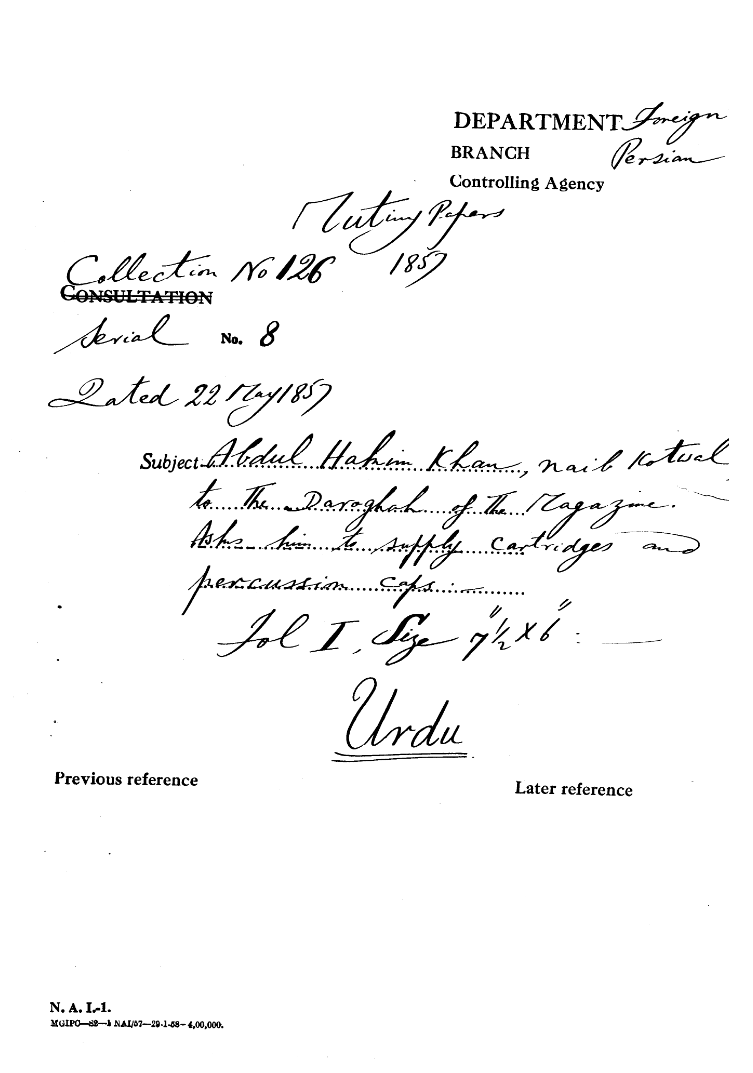 DEPARTMENT Foreign
BRANCH Persian
Controlling Agency
Mutiny Papers
1857
Collection No 126
CONSULTATION
Serial No. 8
Dated 22 May 1857
Subject Abdul Hakim Khan, naib Kotwal
to The Daroghah of the Magazine.
Asks him to supply cartridges and
percussion caps.
Fol I, Size 7½" X 6"
Urdu
Previous reference
Later reference
N. A. I.-1.
MGIPC—S2—1 NAI/57—29-1-58—4,00,000.